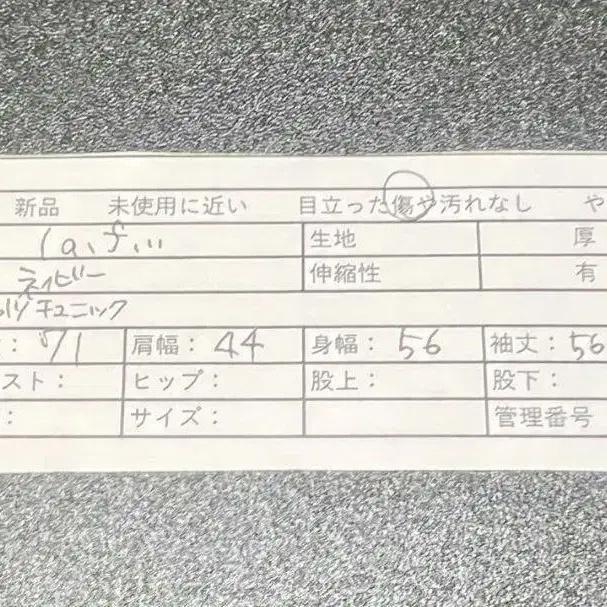 新品 未使用に近い 目立った傷や汚れなし や
la.f... 生地 厚
ネイビー 伸縮性 有
チュニック
: 71 肩幅: 44 身幅: 56 袖丈: 56
スト: ヒップ: 股上: 股下:
: サイズ: 管理番号